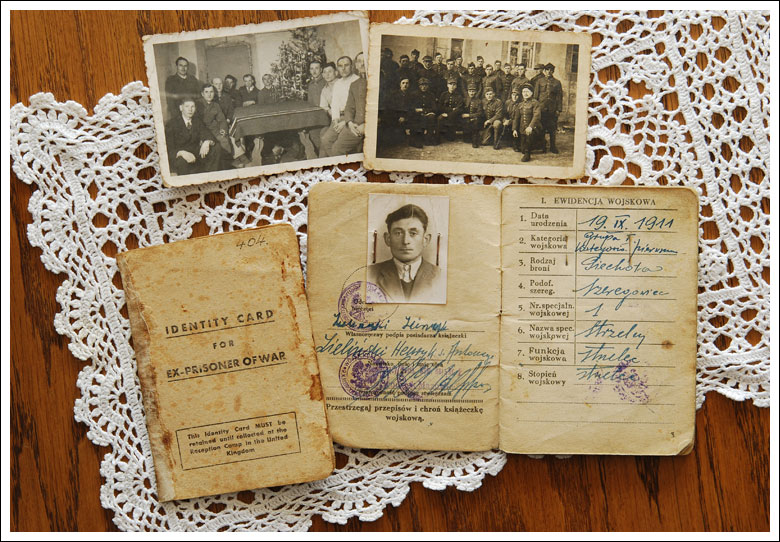 404
IDENTITY CARD
FOR
EX-PRISONER OF WAR
This Identity Card MUST be
retained until collected at the
Reception Camp in the United
Kingdom
Własnoręczny podpis posiadacza książeczki
Zieliński Henryk s. Antoniego
Przestrzegaj przepisów i chroń książeczkę
wojskową.
I. EWIDENCJA WOJSKOWA
1. Data
urodzenia 19. IX. 1911
2. Kategoria
wojskowa Grupa
Kategoria
3. Rodzaj
broni Piechota
4. Podof.
szereg. szeregowiec
5. Nr. specjaln.
wojskowej 1
6. Nazwa spec.
wojskowej Strzelcy
7. Funkcja
wojskowa strzelec
8. Stopień
wojskowy strzelec